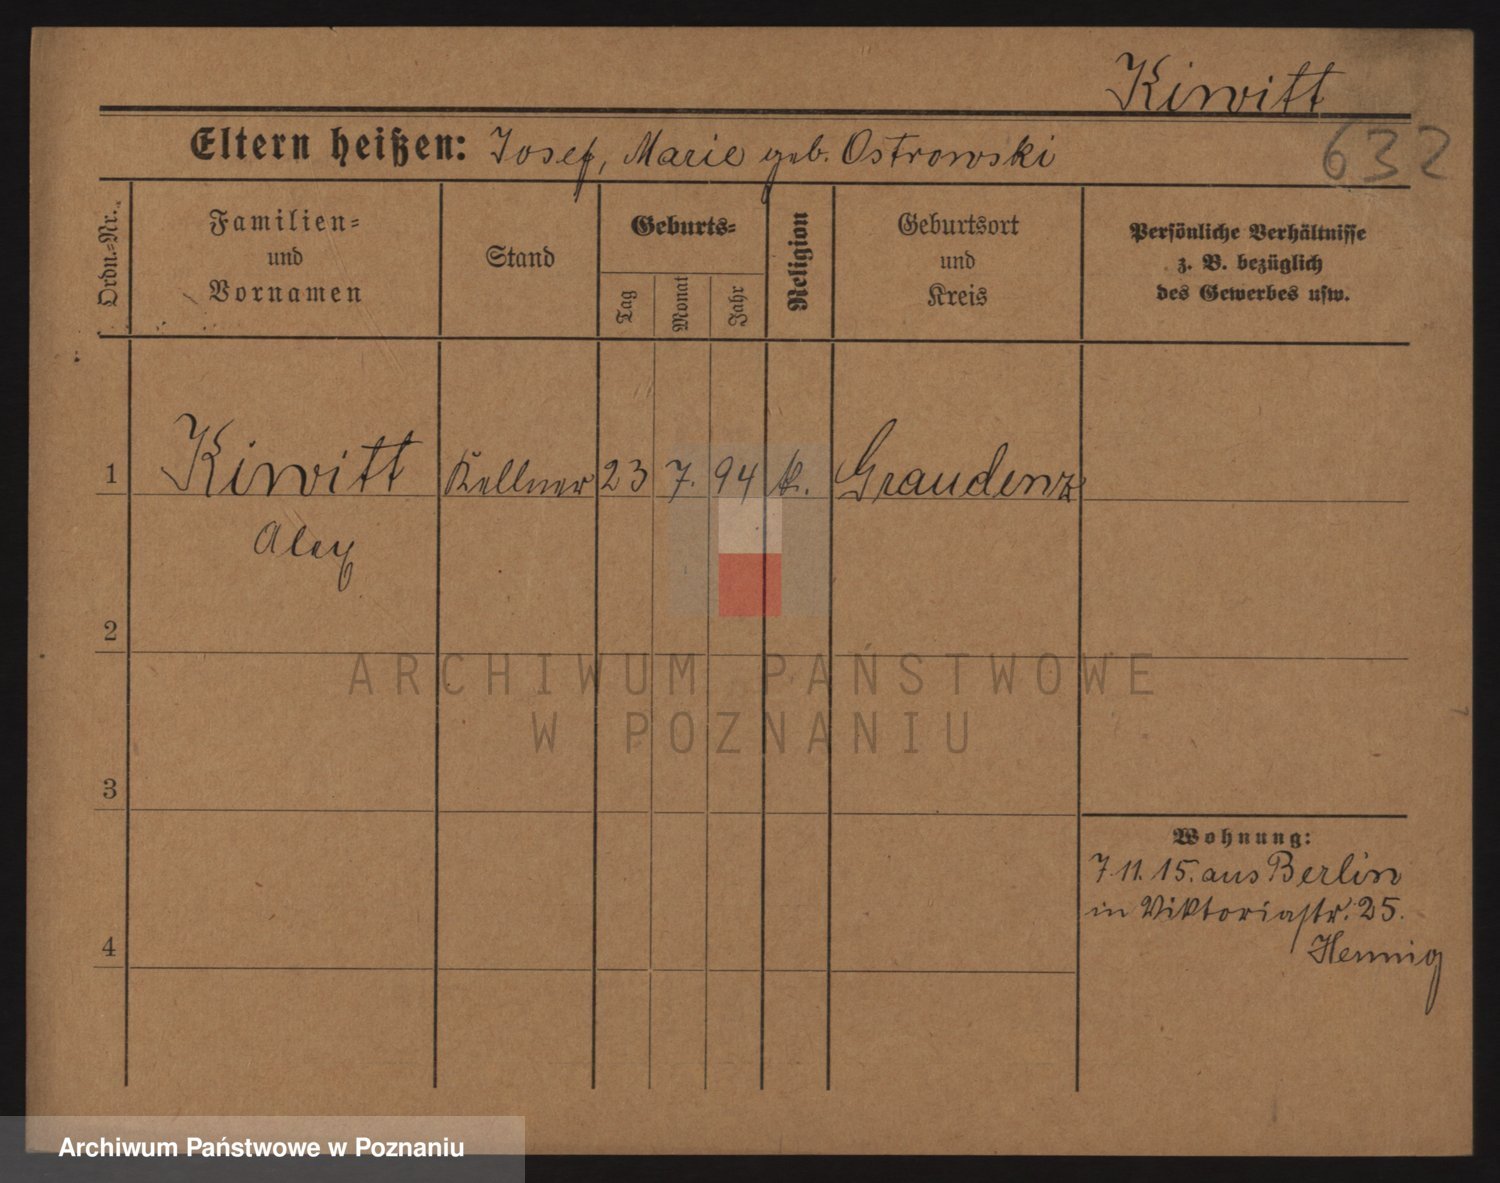 Kirwitt
632
Eltern heißen: Josef, Marie geb. Ostrowski
Ordn.-Nr.
Familien-
und
Vornamen
Stand
Geburts-
Tag
Monat
Jahr
Religion
Geburtsort
und
Kreis
Persönliche Verhältnisse
z. B. bezüglich
des Gewerbes usw.
1 Kirwitt Kellner 23 7. 94 k. Graudenz
Alex
2
3
4
Wohnung:
7.11.15. aus Berlin
in Viktoriastr. 25.
Hennig
ARCHIWUM PAŃSTWOWE
W POZNANIU
Archiwum Państwowe w Poznaniu